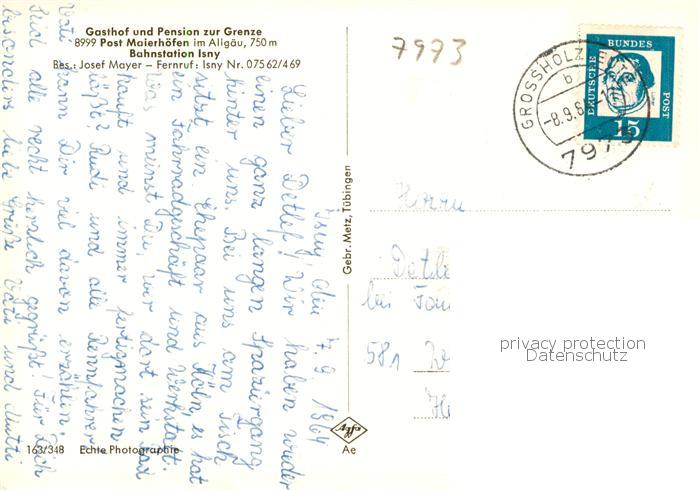 Gasthof und Pension zur Grenze
8999 Post Maierhöfen im Allgäu, 750 m
Bahnstation Isny
Bes.: Josef Mayer – Fernruf: Isny Nr. 07562/469
Isny den 7.9.1964
Lieber Detlef! Wir haben wieder
einen ganz langen Spaziergang
hinter uns. Bei uns am Tisch
sitzt ein Ehepaar aus Köln, es hat
ein Fahrradgeschäft und Werkstatt.
Was meinst Du, wer dort sein Rad
kauft und immer fertigmachen
läßt? Rudi und alle Rennfahrer
Vati kann Dir viel davon erzählen.
Seid alle recht herzlich gegrüßt! Für Dich
besonders liebe Grüße Vati und Mutti
163/348 Echte Photographie
Gebr. Metz, Tübingen
Agfa
Ae
7973
GROSSHOLZLEUTE
b
-8.9.6
797
DEUTSCHE BUNDES POST
15
Herrn
Detle
bei
581
privacy protection
Datenschutz